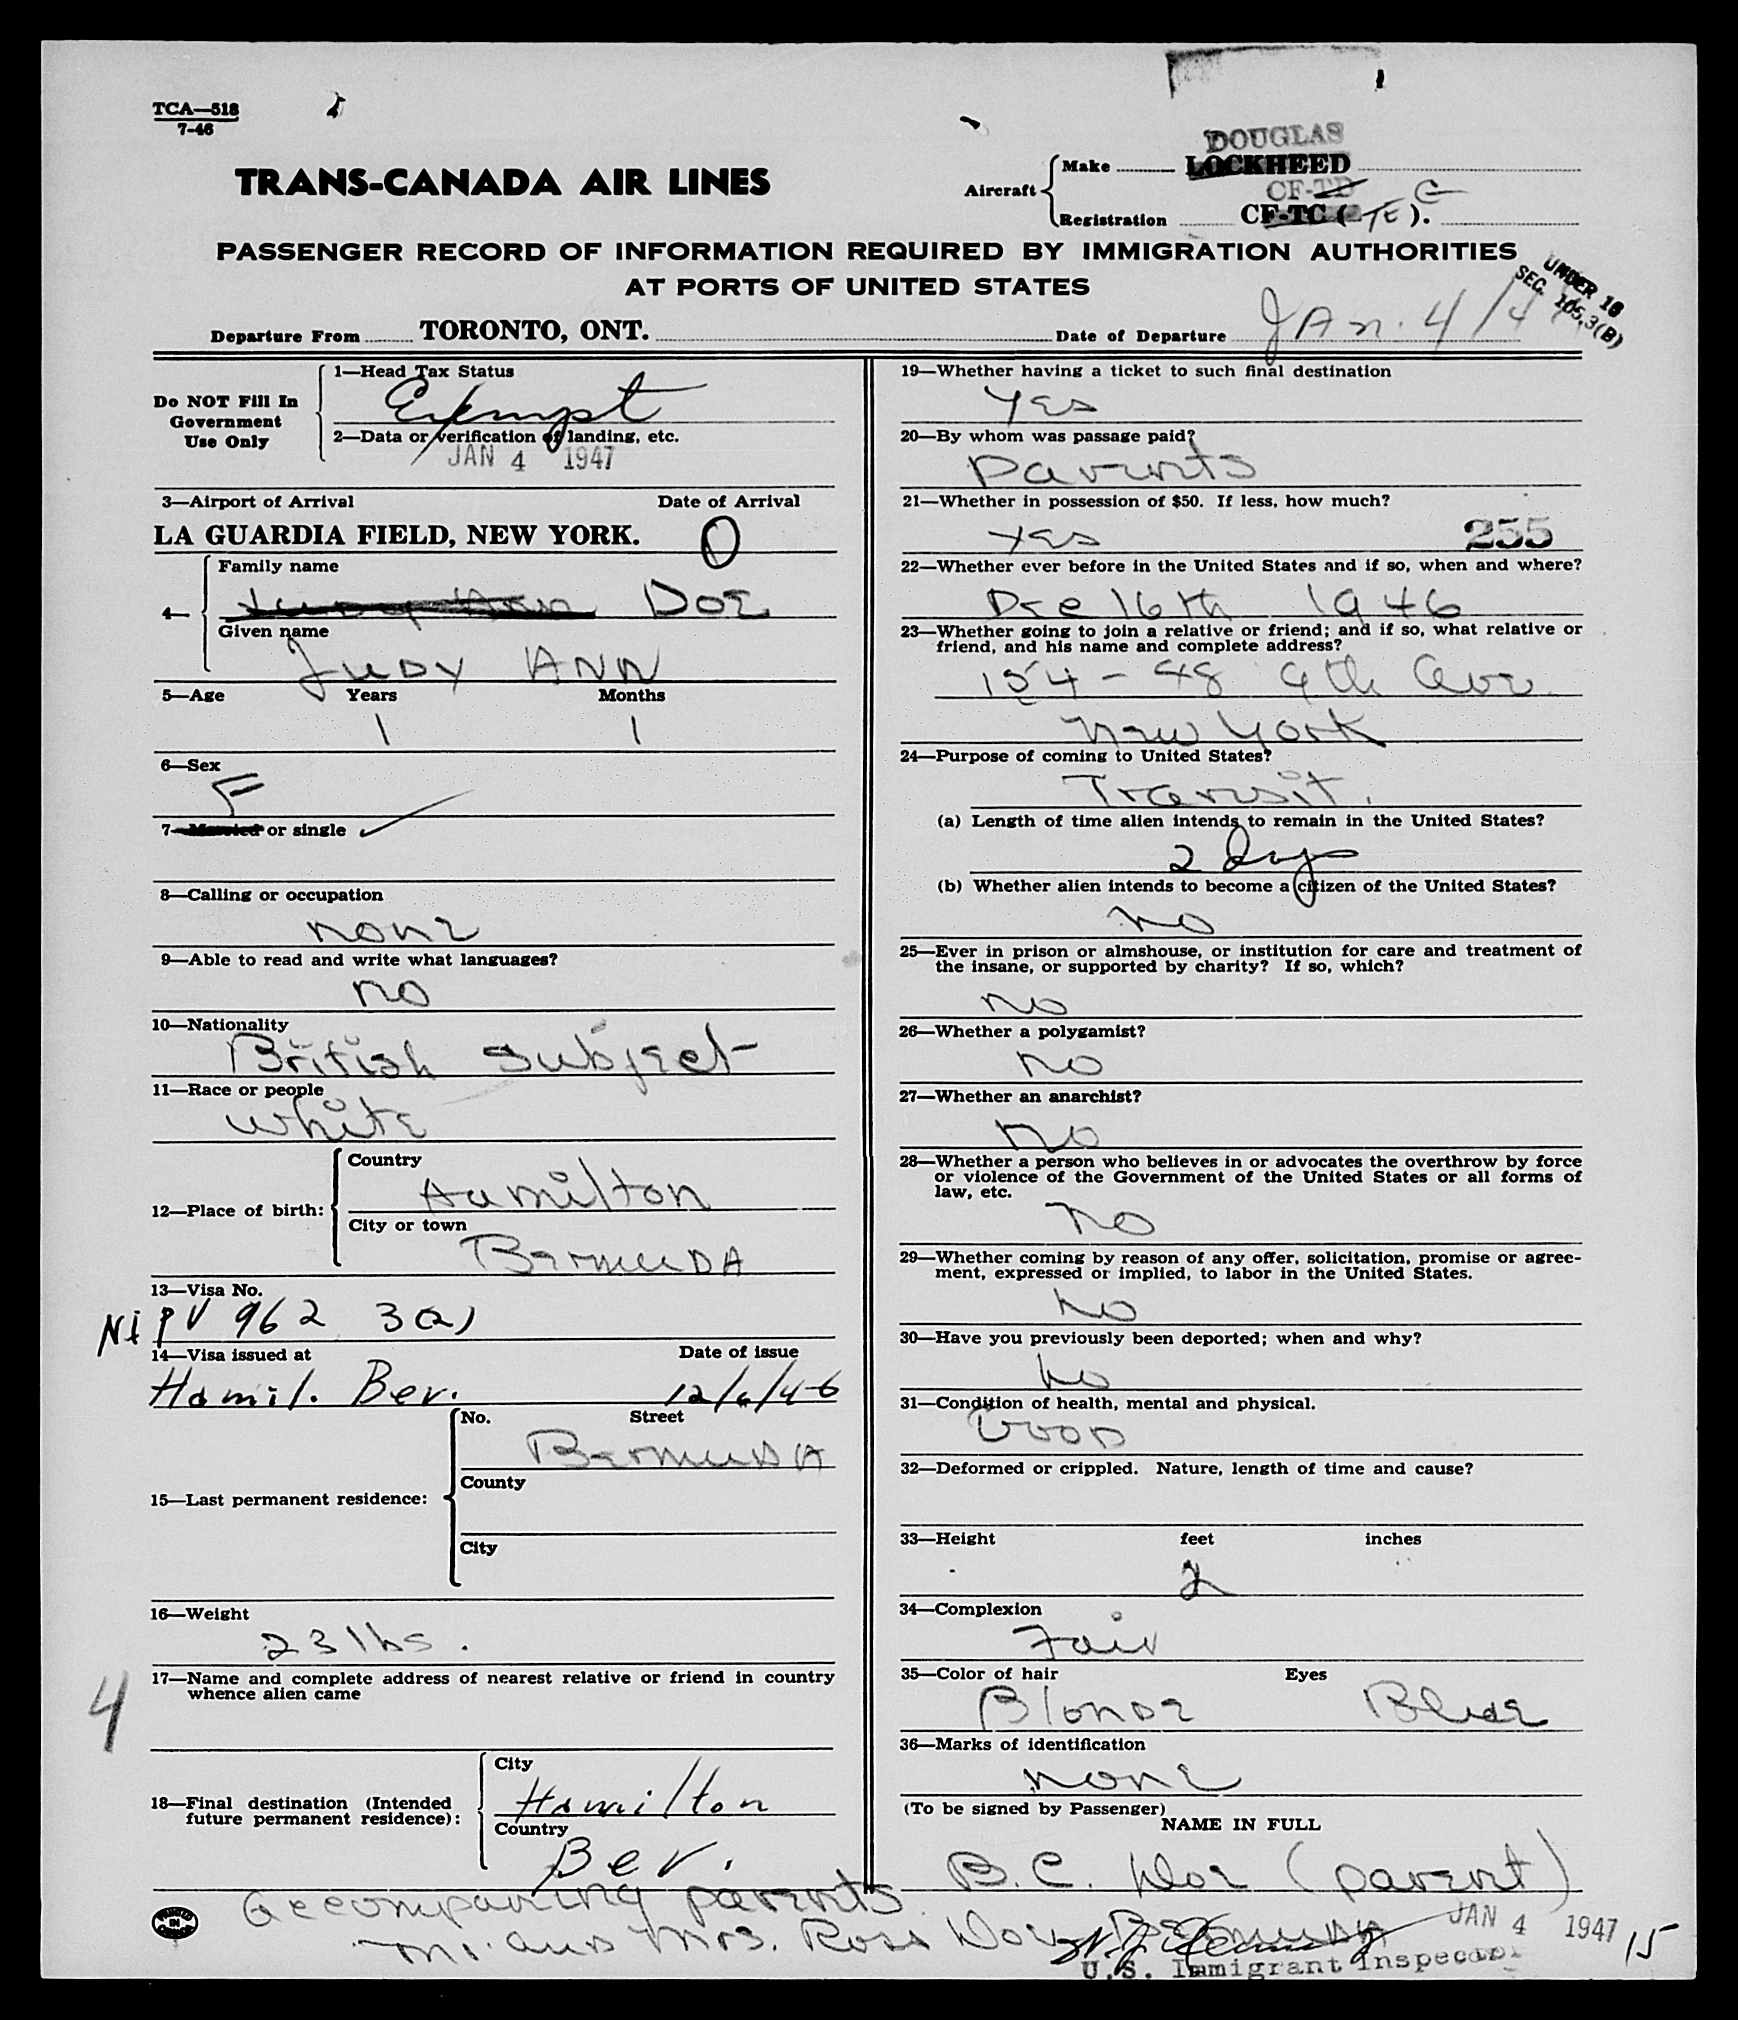 TCA—518
7-46
TRANS-CANADA AIR LINES
DOUGLAS
Aircraft
Make LOCKHEED
CF-TD
Registration CF-TC ( TE ).
PASSENGER RECORD OF INFORMATION REQUIRED BY IMMIGRATION AUTHORITIES
AT PORTS OF UNITED STATES
UNDER 16
SEC. 105.3(B)
Departure From TORONTO, ONT. Date of Departure JAn. 4/47
Do NOT Fill In
Government
Use Only
1—Head Tax Status
Exempt
2—Data or verification of landing, etc.
JAN 4 1947
3—Airport of Arrival Date of Arrival
LA GUARDIA FIELD, NEW YORK. O
4—
Family name
Judy Ann DOE
Given name
JUDY ANN
5—Age Years Months
1 1
6—Sex
F
7—Married or single ✓
8—Calling or occupation
none
9—Able to read and write what languages?
no
10—Nationality
British subject
11—Race or people
white
12—Place of birth:
Country
Hamilton
City or town
BermuDA
13—Visa No.
NI PV 962 3(2)
14—Visa issued at Date of issue
Hamil. Ber. 12/6/46
15—Last permanent residence:
No. Street
BermuDA
County
City
16—Weight
23 lbs.
17—Name and complete address of nearest relative or friend in country
whence alien came
4
18—Final destination (Intended
future permanent residence):
City
Hamilton
Country
Ber.
Accompaning parents
Mr. and Mrs. Ross Doe, Bermuda
19—Whether having a ticket to such final destination
yes
20—By whom was passage paid?
parents
21—Whether in possession of $50. If less, how much?
yes 255
22—Whether ever before in the United States and if so, when and where?
Dec 16th 1946
23—Whether going to join a relative or friend; and if so, what relative or
friend, and his name and complete address?
154-48 9th Ave.
New York
24—Purpose of coming to United States?
Transit.
(a) Length of time alien intends to remain in the United States?
2 days
(b) Whether alien intends to become a citizen of the United States?
no
25—Ever in prison or almshouse, or institution for care and treatment of
the insane, or supported by charity? If so, which?
no
26—Whether a polygamist?
no
27—Whether an anarchist?
no
28—Whether a person who believes in or advocates the overthrow by force
or violence of the Government of the United States or all forms of
law, etc.
no
29—Whether coming by reason of any offer, solicitation, promise or agree-
ment, expressed or implied, to labor in the United States.
no
30—Have you previously been deported; when and why?
no
31—Condition of health, mental and physical.
Good
32—Deformed or crippled. Nature, length of time and cause?
33—Height feet inches
2
34—Complexion
Fair
35—Color of hair Eyes
Blonde Blue
36—Marks of identification
none
(To be signed by Passenger)
NAME IN FULL
B.C. Doe (parent)
JAN 4 1947 15
U.S. Immigrant Inspector